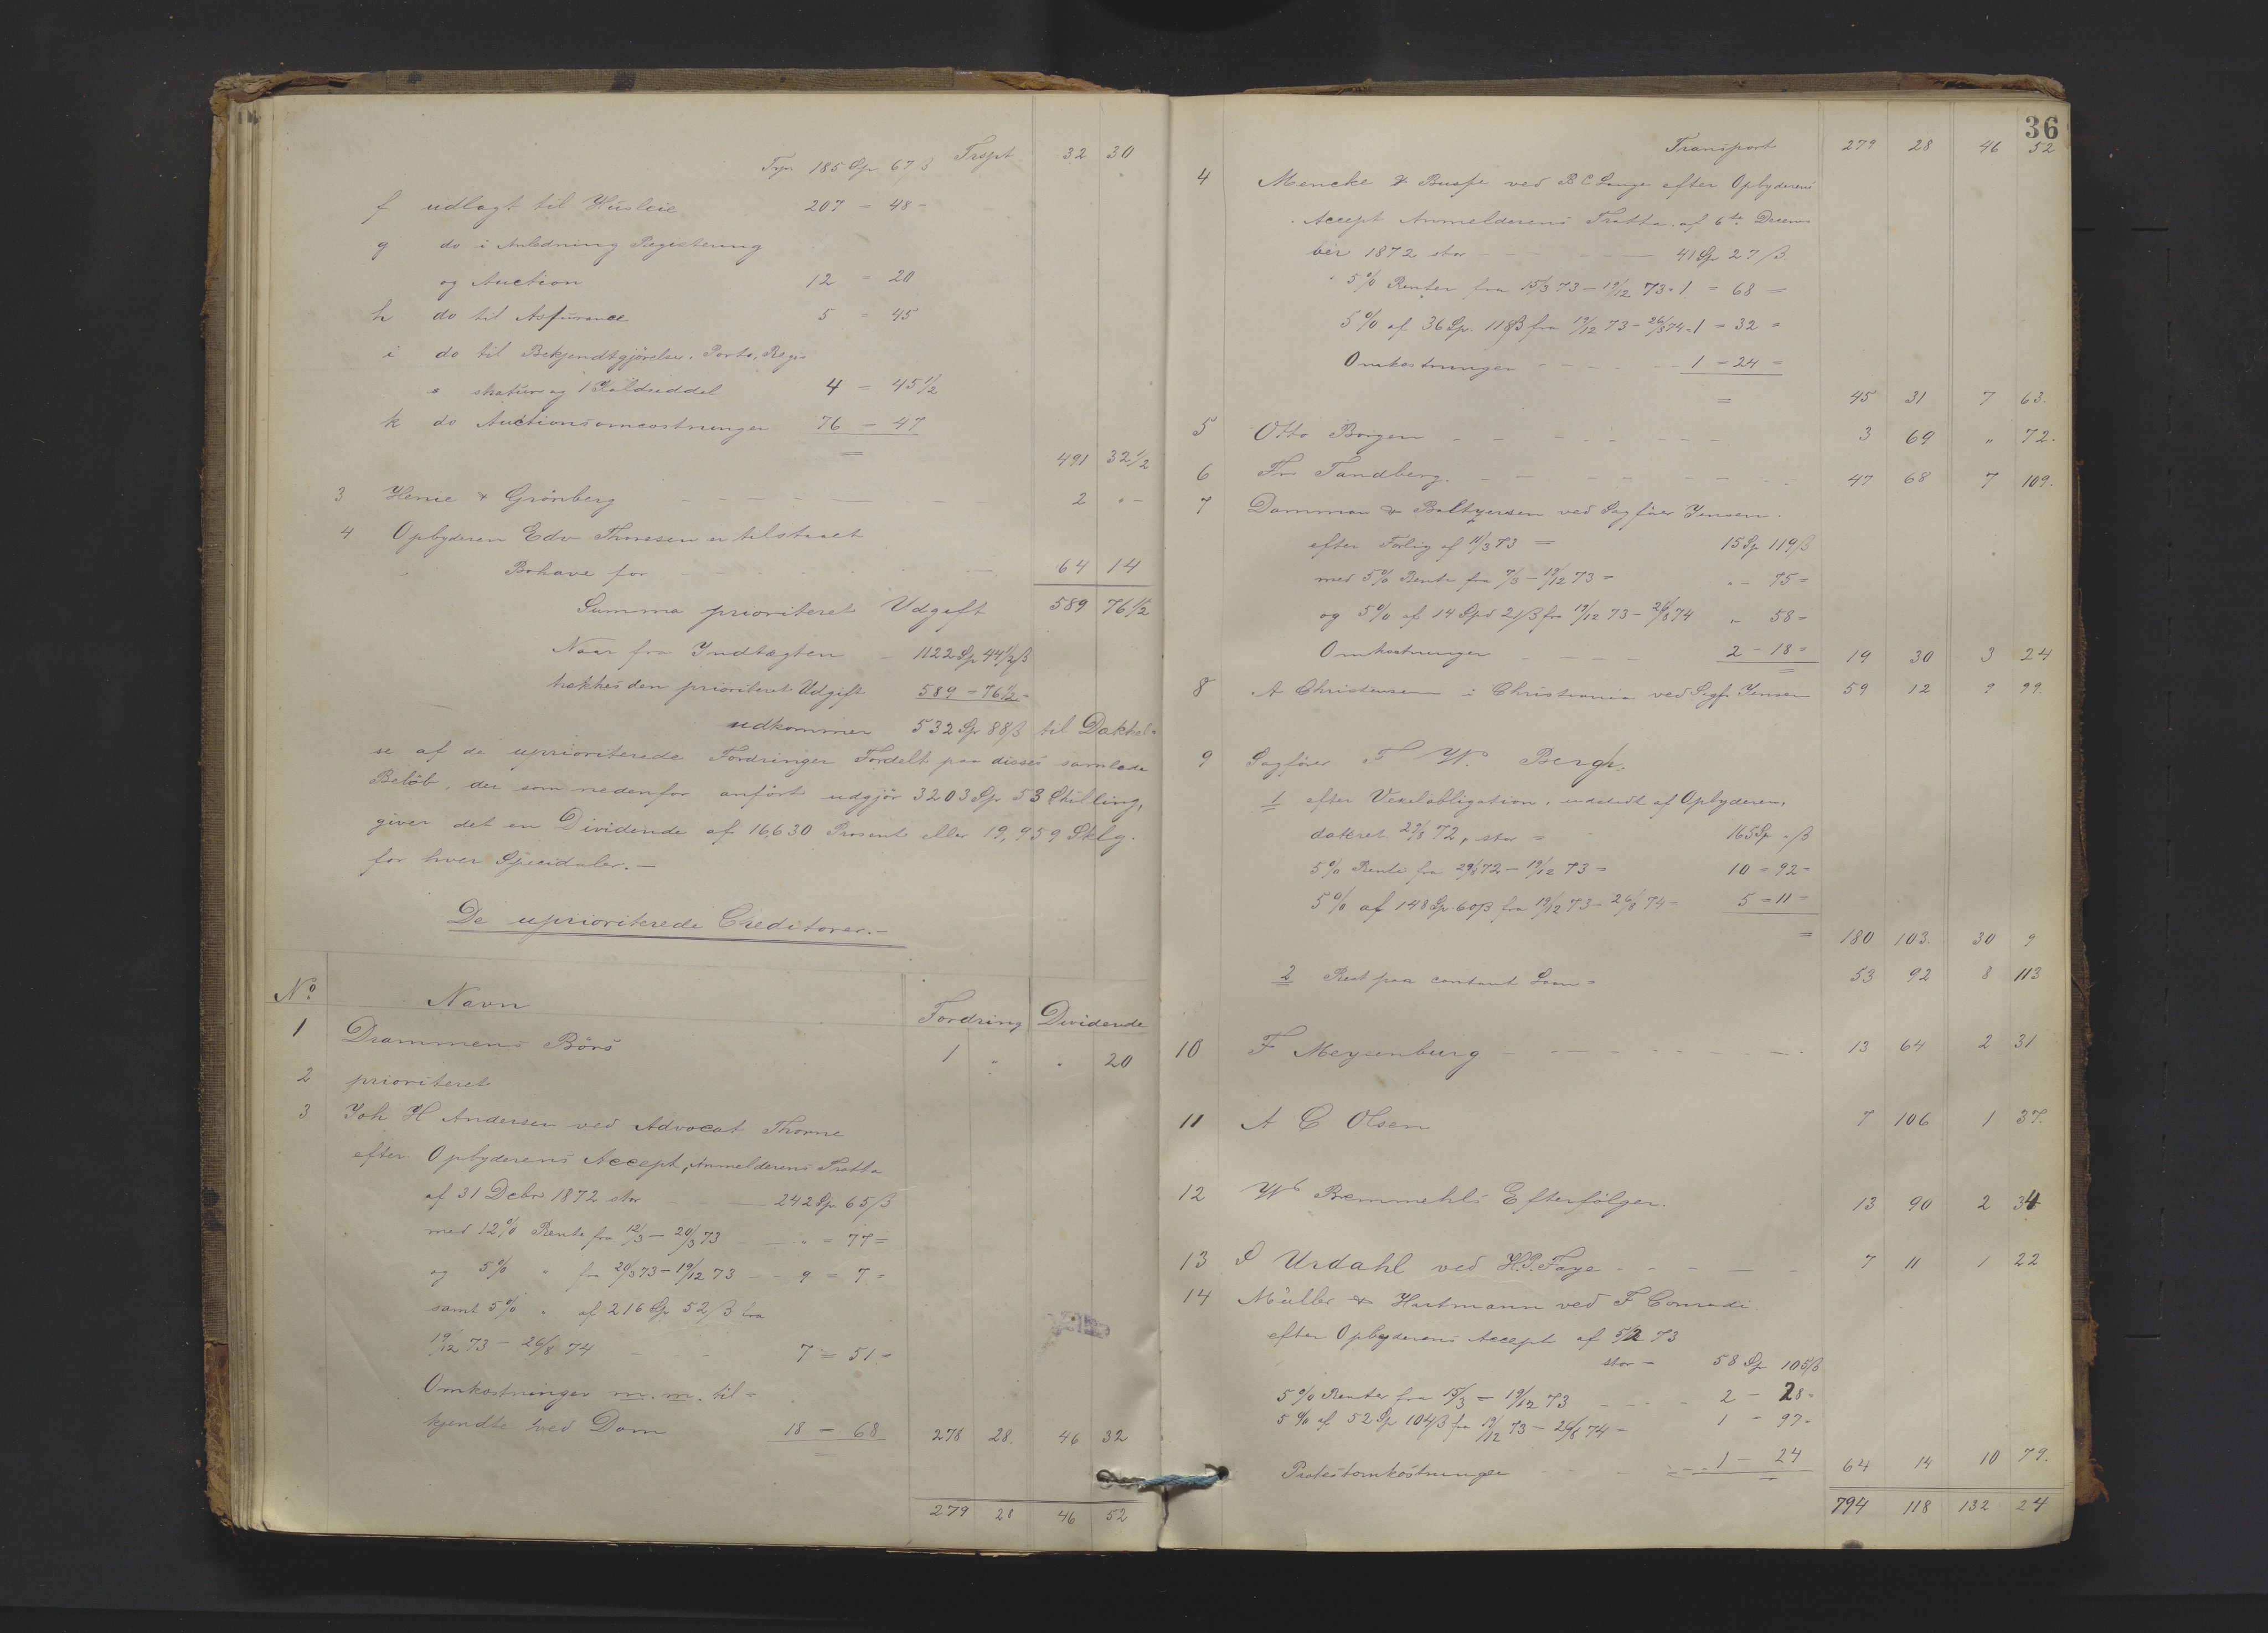 Trspt. 32 30
Trpr 185 Sp 67 ß
f udlagt til Husleie 207 = 48 =
g do i Anledning Registering
og Auction 12 = 20
h do til Assurance 5 = 45
i do til Bekjendtgjörelser, Porto, Regi-
skatur og 1 Kaldseddel 4 = 45 1/2
k do Auctionsomcostninger 76 = 47
= 491 32 1/2
3 Henie & Grönberg 2 " -
4 Opbyderen Edv Thoresen er tilstaaet
Bohave for 64 14
Summa prioriteret Udgift 589 76 1/2
Naar fra Indtægten 1122 Sp 44 1/2 ß
trækkes den prioriteret Udgift 589 = 76 1/2 =
udkommer 532 Sp 88 ß til Dækkel-
se af de uprioriterede Fordringer Fordelt paa disses samlede
Belöb, der som nedenfor anfört udgjör 3203 Sp 53 Skilling,
giver det en Dividende af 16,630 Procent eller 19,959 Sklg.
for hver Speciedaler. —
De uprioriterede Creditorer. —
No Navn Fordring Dividende
1 Drammens Börs 1 " " 20
2 prioriteret
3 Joh H Andersen ved Advocat Thorne
efter Opbyderens Accept, Anmelderens Tratta
af 31 Debr 1872 stor 242 Sp 65 ß
med 12% Rente fra 12/3 — 20/3 73 " = 77 =
og 5% " fra 20/3 73 — 19/12 73 9 = 7 =
samt 5% " af 216 Sp 52 ß fra
19/12 73 — 26/8 74 7 = 51 =
Omkostninger m. m. til-
kjendte ved Dom 18 = 68 278 28. 46 32
279 28 46 52
36
Transport 279 28 46 52
4 Mencke & Busse ved B C Lange efter Opbyderens
Accept Anmelderens Tratta af 6te Decem
ber 1872 stor 41 Sp 27 ß.
5% Renter fra 15/3 73 — 19/12 73 = 1 = 68 =
5% af 36 Sp. 118 ß fra 19/12 73 — 26/8 74 = 1 = 32 =
Omkostninger 1 = 24 =
= 45 31 7 63.
5 Otto Borgen 3 69 " 72.
6 Fr Tandberg. 47 68 7 109.
7 Damman & Baltzersen ved Sagförer Jensen.
efter Forlig af 11/3 73 = 15 Sp 119 ß
med 5% Rente fra 7/3 — 19/12 73 = " — 75 =
og 5% af 14 Spd 21 ß fra 19/12 73 — 26/8 74 " 58 =
Omkostninger 2 — 18 = 19 30 3 24
8 A Christensen i Christiania ved Sagf. Jensen 59 12 9 99.
9 Sagförer F W. Bergh.
1 efter Vexelobligation, udstedt af Opbyderen,
dateret 29/8 72, stor = 165 Sp " ß
5% Rente fra 29/8 72 — 19/12 73 = 10 = 92 =
5% af 148 Sp 60 ß fra 19/12 73 — 26/8 74 = 5 = 11 =
= 180 103. 30 9
2 Rest paa contant Laan = 53 92 8 113
10 F Meysenburg 13 64 2 31
11 A C Olsen 7 106 1 37.
12 Wb Bemmehls Efterfölger. 13 90 2 34
13 S Urdahl ved H. P. Faye 7 11 1 22
14 Müller & Hartmann ved F Conradi
efter Opbyderens Accept af 5/2 73
stor — 58 Sp 105 ß
5% Renter fra 15/3 — 19/12 73 2 — 28 =
5% af 52 Sp 104 ß fra 19/12 73 — 26/8 74 = 1 = 97 =
Protestomkostninger 1 — 24 64 14 10 79.
794 118 132 24